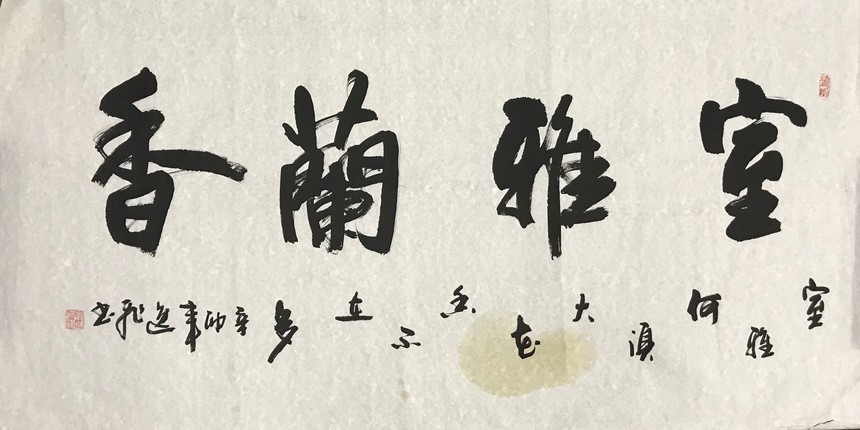 室雅蘭香
室雅何須大花香不在多
辛卯年书